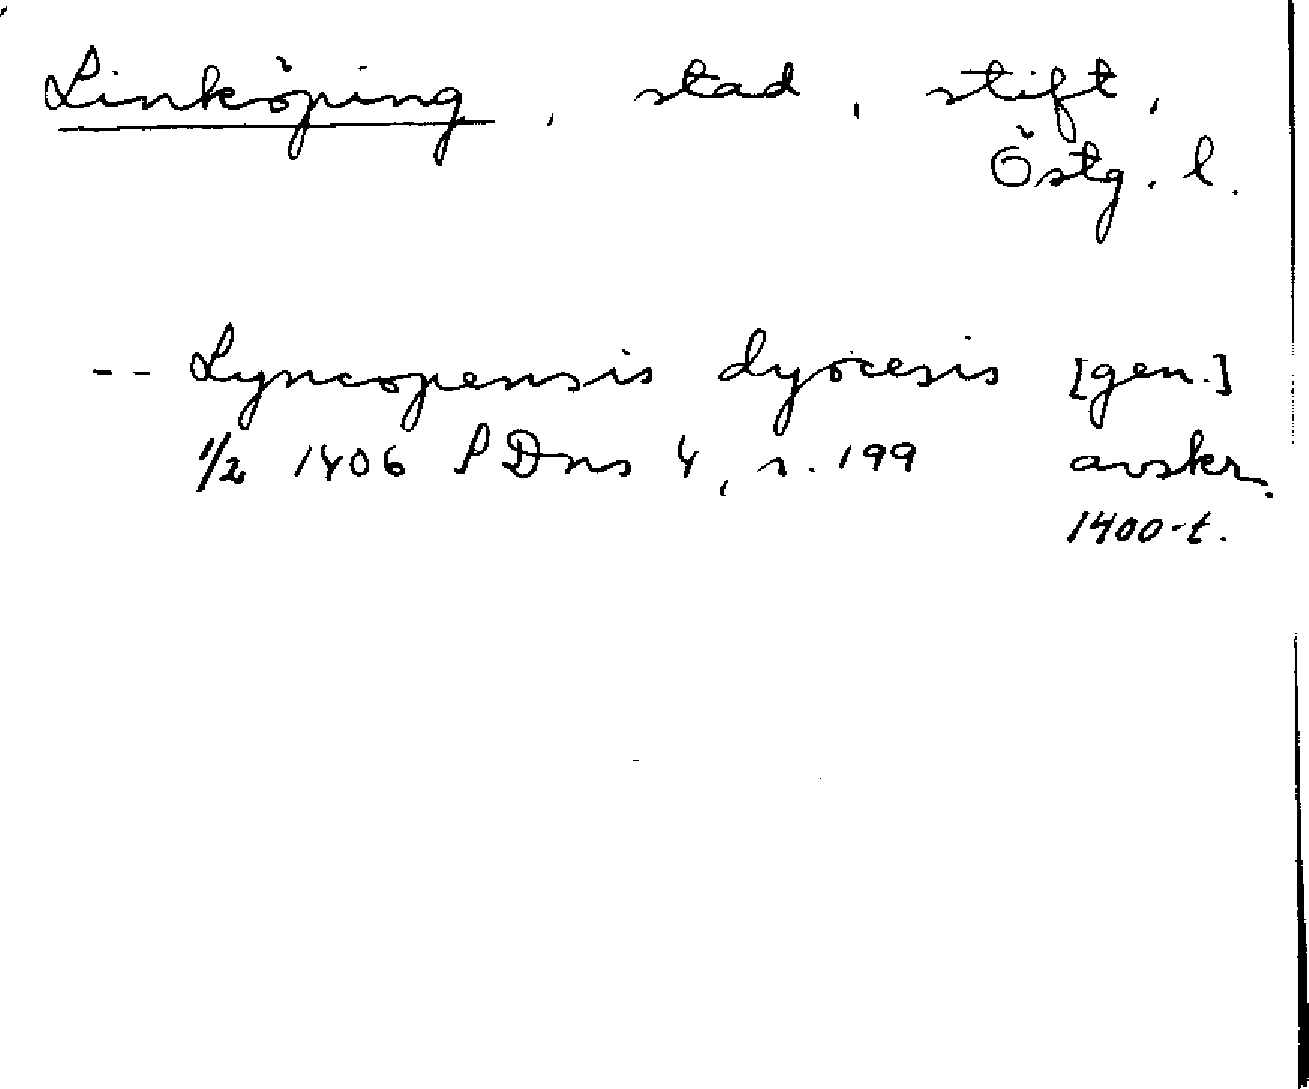 Linköping, stad, stift,
Östg. l.
-- Lyncopensis dyocesis [gen.]
1/2 1406 SDns 4, s. 199 avskr.
1400-t.